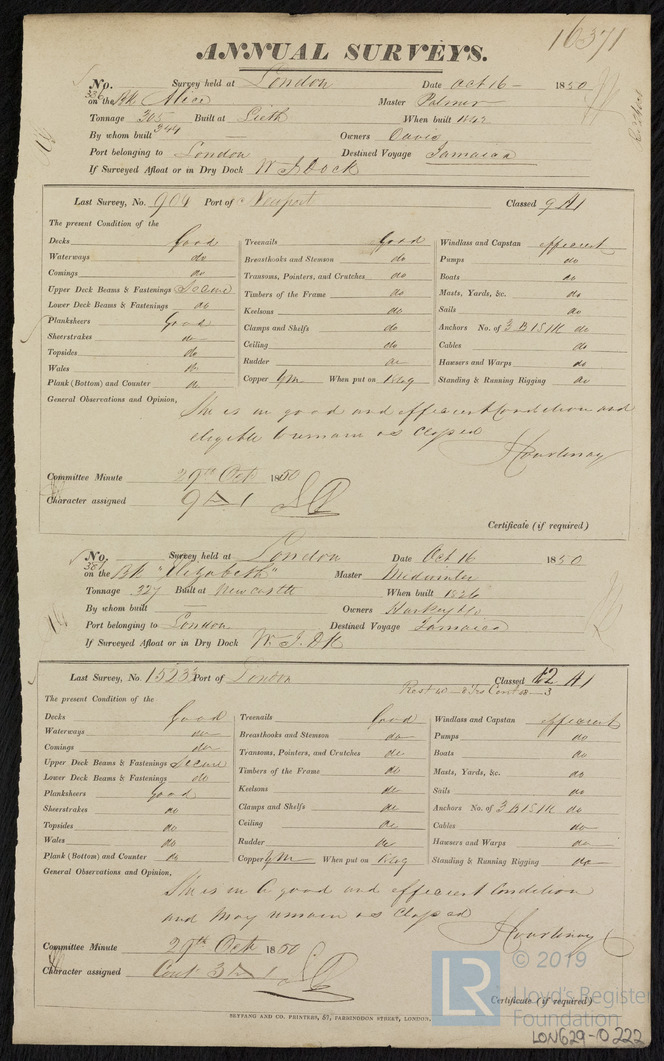 16371
ANNUAL SURVEYS.
No. Survey held at London Date Oct 16 1850
on the Bk Alice Master Palmer
Tonnage 305 Built at Leith When built 1842
344
By whom built Owners Davis
Port belonging to London Destined Voyage Jamaica
If Surveyed Afloat or in Dry Dock W I Dock
Last Survey, No. 904 Port of Newport Classed 9 A1
The present Condition of the
Decks Good Treenails Good Windlass and Capstan efficient
Waterways do Breasthooks and Stemson do Pumps do
Comings do Transoms, Pointers, and Crutches do Boats do
Upper Deck Beams & Fastenings Secure Timbers of the Frame do Masts, Yards, &c. do
Lower Deck Beams & Fastenings do Keelsons do Sails do
Planksheers Good Clamps and Shelfs do Anchors No. of 3 B 1 S 1 K do
Sheerstrakes do Ceiling do Cables do
Topsides do Rudder do Hawsers and Warps do
Wales do Copper YM When put on Standing & Running Rigging do
Plank (Bottom) and Counter do
General Observations and Opinion,
She is in good and efficient Condition and
eligible to remain as Classed
J Courtenay
Committee Minute 29th Oct 1850
Character assigned 9 A 1
Certificate (if required)
No. Survey held at London Date Oct 16 1850
on the Bk "Elizabeth" Master Midwinter
Tonnage 327 Built at Newcastle When built 1826
By whom built Owners
Port belonging to London Destined Voyage Jamaica
If Surveyed Afloat or in Dry Dock W. I. Dk
Last Survey, No. 1523 Port of London Classed 12 A1
The present Condition of the
Decks Good Treenails Good Windlass and Capstan efficient
Waterways do Breasthooks and Stemson do Pumps do
Comings do Transoms, Pointers, and Crutches do Boats do
Upper Deck Beams & Fastenings Secure Timbers of the Frame do Masts, Yards, &c. do
Lower Deck Beams & Fastenings do Keelsons do Sails do
Planksheers Good Clamps and Shelfs do Anchors No. of 3 B 1 S 1 K do
Sheerstrakes do Ceiling do Cables do
Topsides do Rudder do Hawsers and Warps do
Wales do Copper YM When put on Standing & Running Rigging do
Plank (Bottom) and Counter do
General Observations and Opinion,
She is in a good and efficient Condition
and may remain as Classed
J Courtenay
Committee Minute 29th Oct 1850
Character assigned Cont 3 A 1
Certificate (if required)
SEYFANG AND CO. PRINTERS, 57, FARRINGDON STREET, LONDON.
LR © 2019
Lloyd's Register
Foundation
LON629-0222